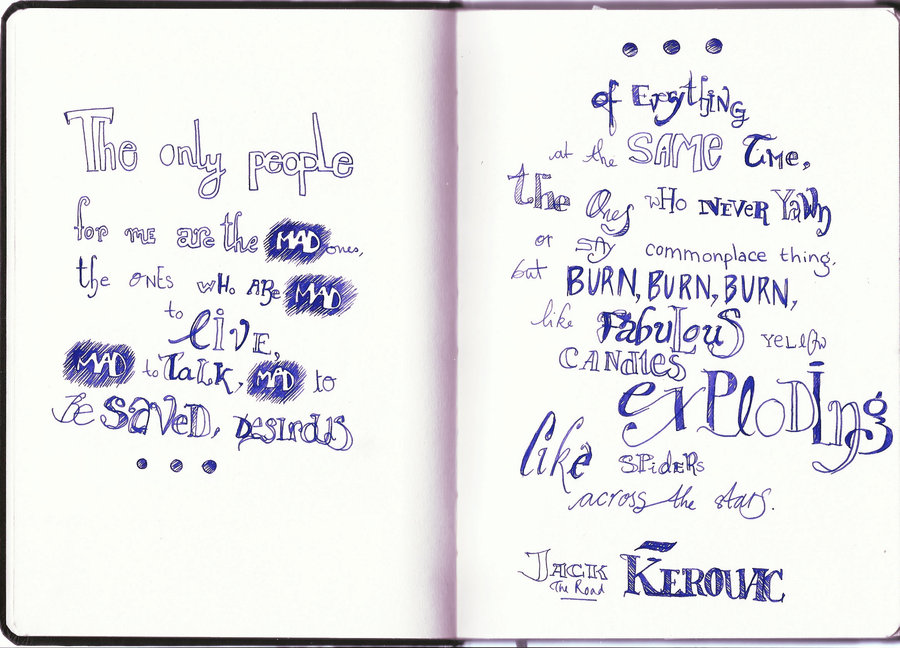 The only people
for me are the MAD ones,
the ones who are MAD
to live,
MAD to talk, MAD to
Be saved, desirous
...
...
of Everything
at the SAME Time,
the Ones who NEVER Yawn
or SAY commonplace thing.
but BURN, BURN, BURN,
like FabuLouS YeLLOW
CANdles exPloDing
like SPiDERs
across the stars.
JACK KEROUAC
The Road